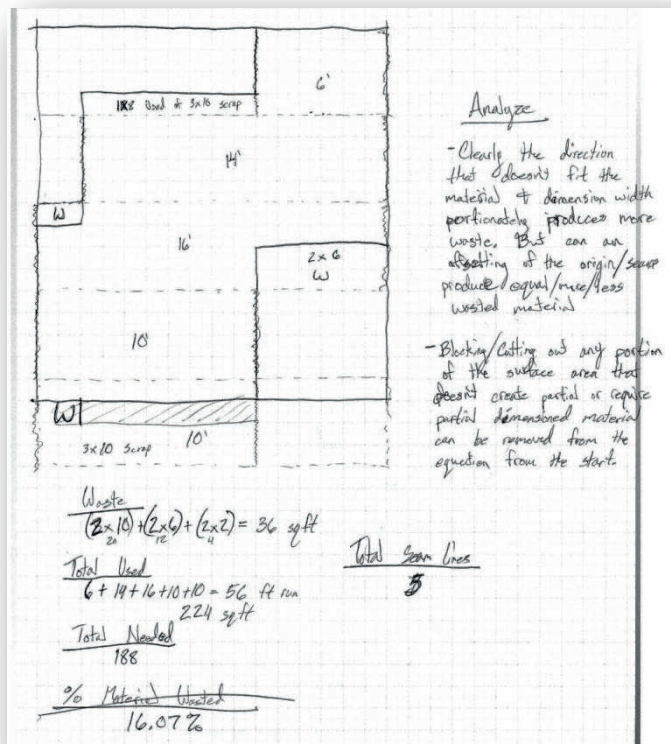 6'
188 Used of 3x10 scrap
14'
W
16'
2 x 6
W
10'
W
10'
3x10 Scrap
Analyze
- Clearly the direction
that doesn't fit the
material & dimension width
portionately produces more
waste. But can an
offsetting of the origin/
produce equal/more/less
wasted material
- Blocking/Cutting out any portion
of the surface area that
doesn't create partial or require
partial dimensioned material
can be removed from the
equation from the start.
Waste
(2x10)+(2x6)+(2x2) = 36 sqft
20 12 4
Total Used
6+14+16+10+10 = 56 ft run
224 sqft
Total Needed
188
% Material Wasted
16.07%
Total Seam Lines
5